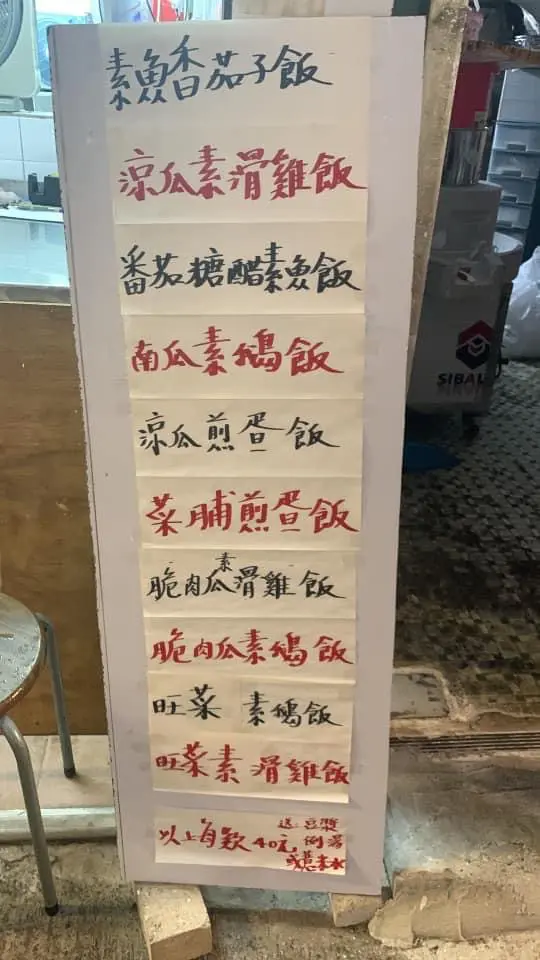 素魚香茄子飯
涼瓜素滑雞飯
番茄糖醋素魚飯
南瓜素鵝飯
涼瓜煎蛋飯
菜脯煎蛋飯
脆肉瓜素滑雞飯
脆肉瓜素鵝飯
旺菜 素鵝飯
旺菜素滑雞飯
以上每款40元
送豆漿
例湯
或薏米水
SIBAU